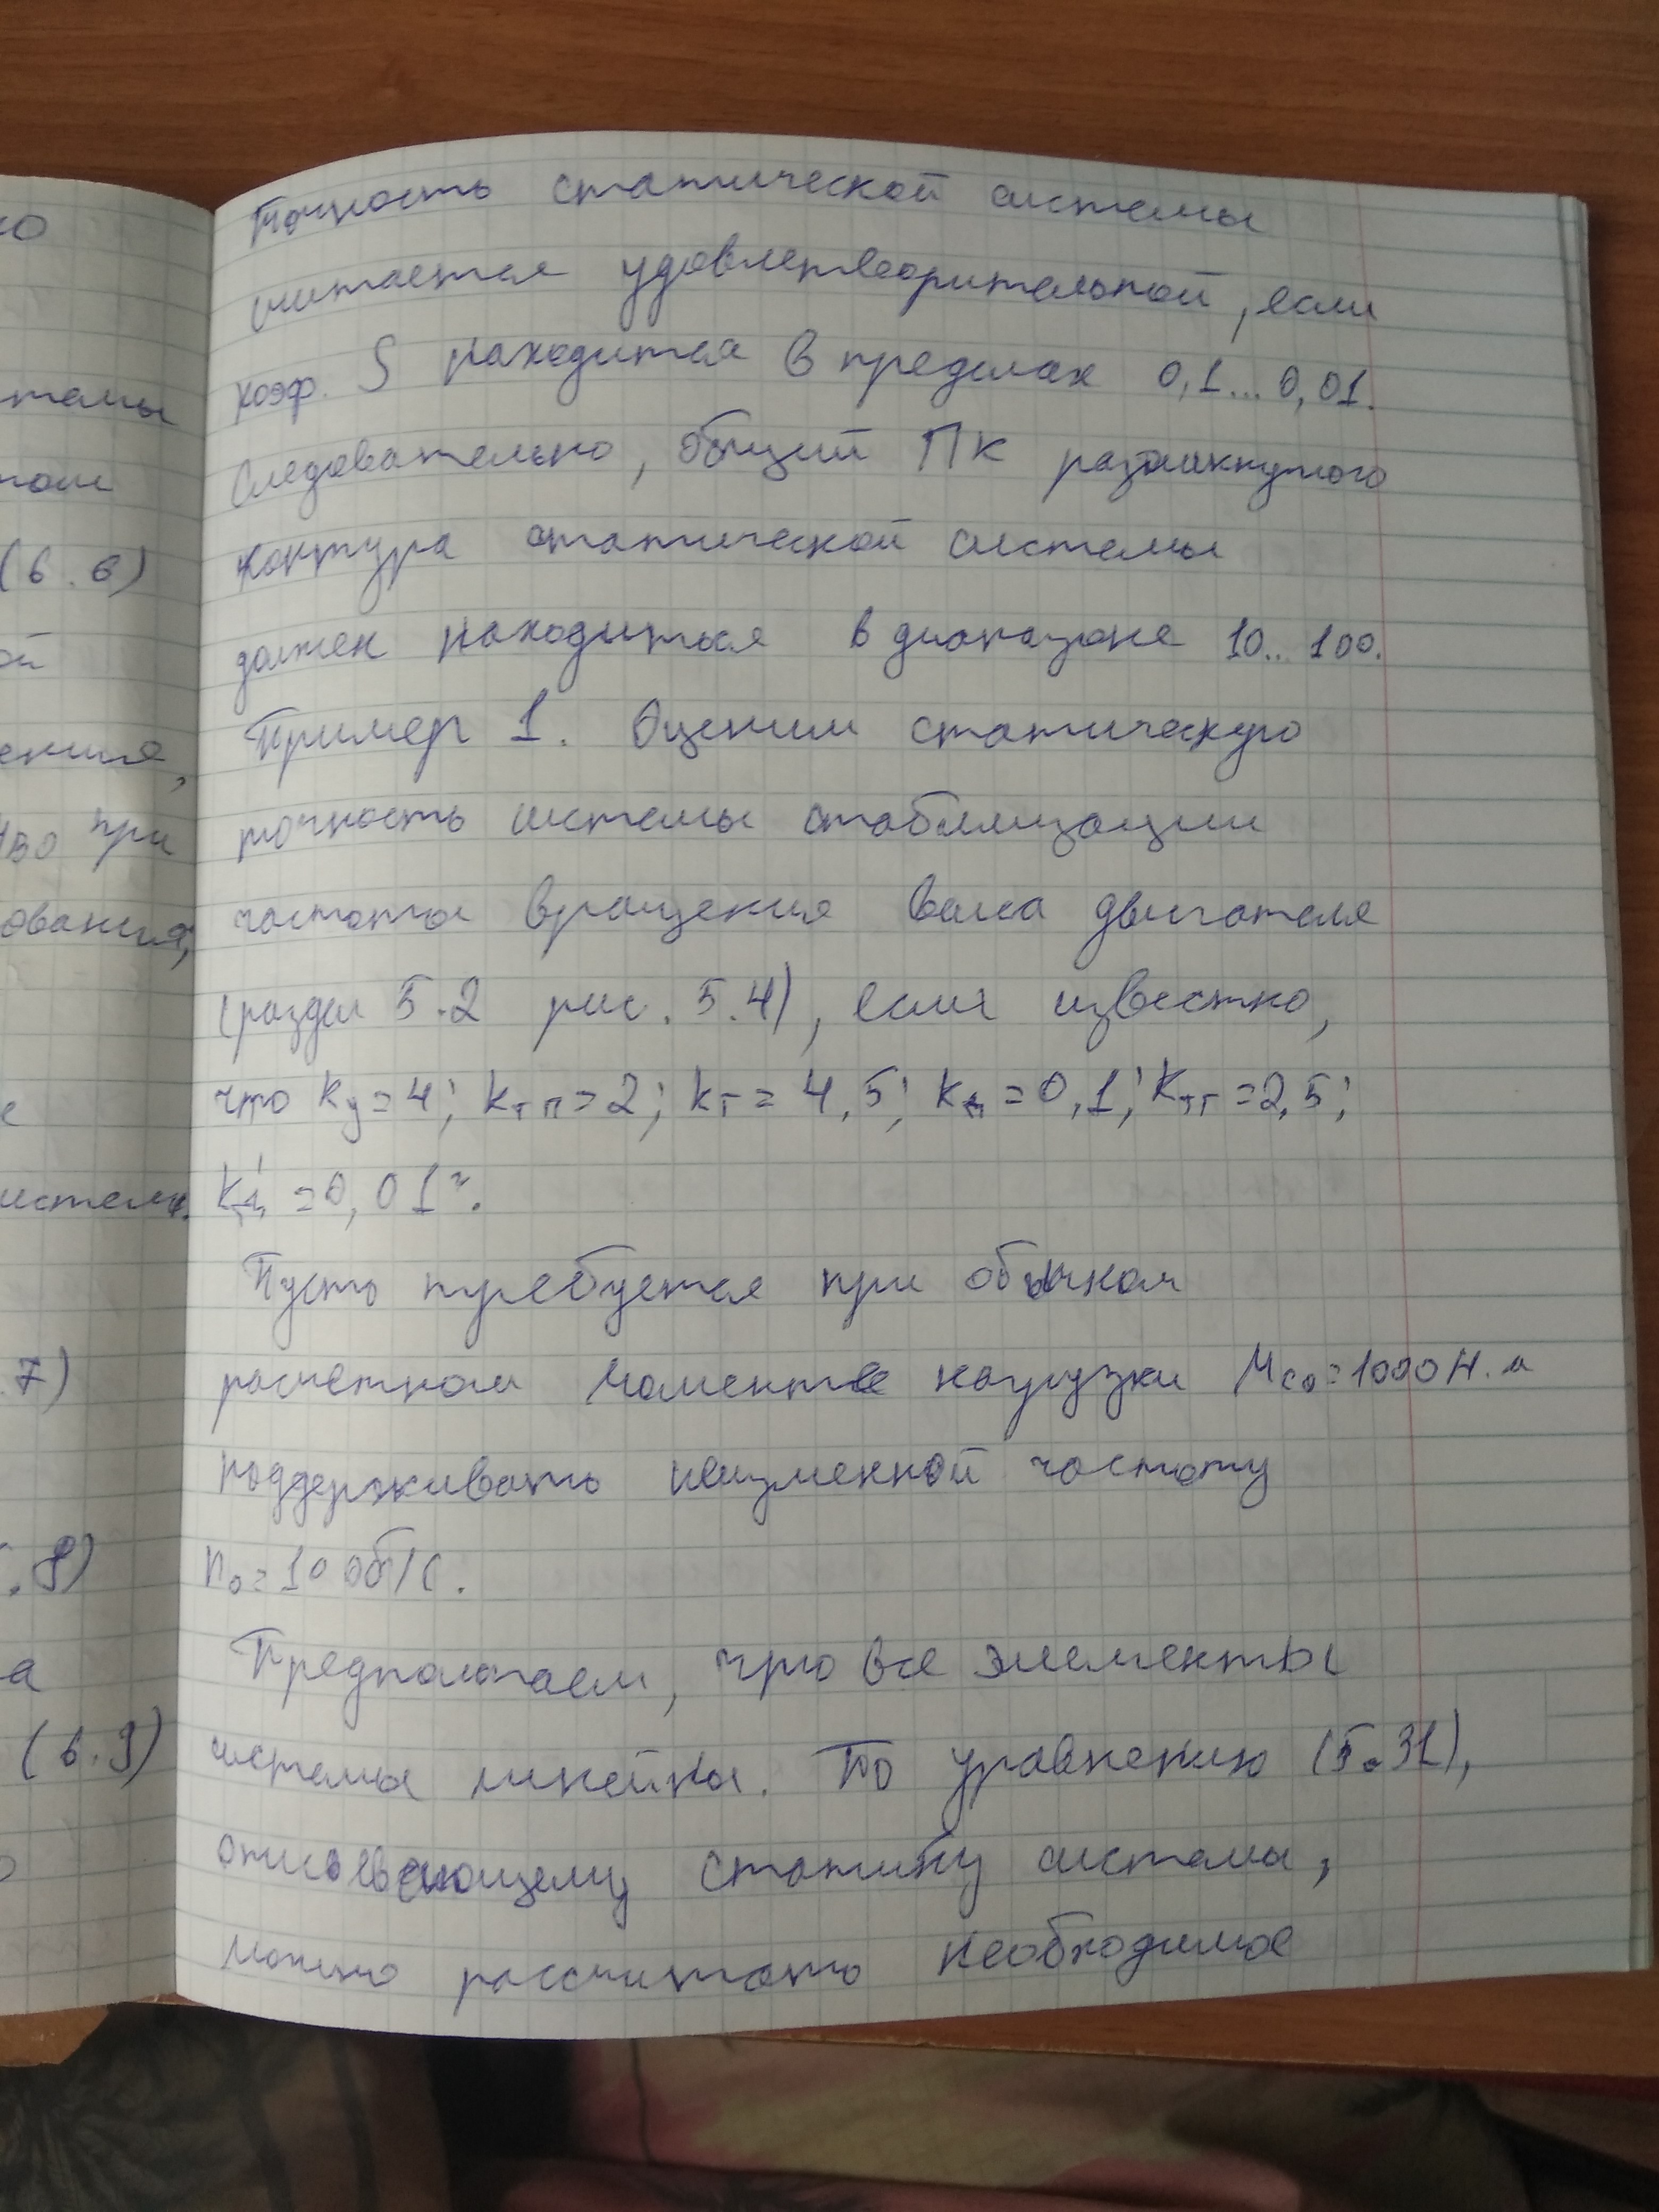 ко
темы
том
(6.6)
ой
ения,
при
ования,
е
истемы.
.7)
.8)
а
(6.9)
Точность статической системы
считается удовлетворительной, если
коэф. S находится в пределах 0,1...0,01.
Следовательно, общий ПК разомкнутого
контура статической системы
должен находиться в диапазоне 10...100.
Пример 1. Оценим статическую
точность системы стабилизации
частоты вращения вала двигателя
(раздел 5.2 рис. 5.4), если известно,
что kу=4; kтп=2; kг=4,5; kд=0,1; kтг=2,5;
k'д=0,01.
Пусть требуется при обычном
расчетном моменте нагрузки Mсо=1000Н.м
поддерживать неизменной частоту
n₀=10 об/с.
Предполагаем, что все элементы
системы линейны. По уравнению (5.31),
описывающему статику системы,
можно рассчитать необходимое